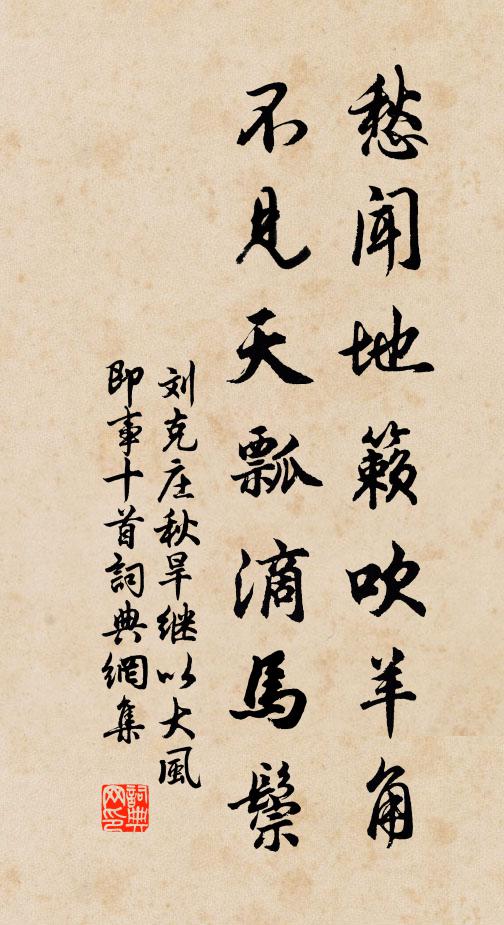 愁闻地籁吹羊角
不见天瓢滴馬鬃
刘克庄秋旱继以大風
即事十首詞典網集
詞典网印